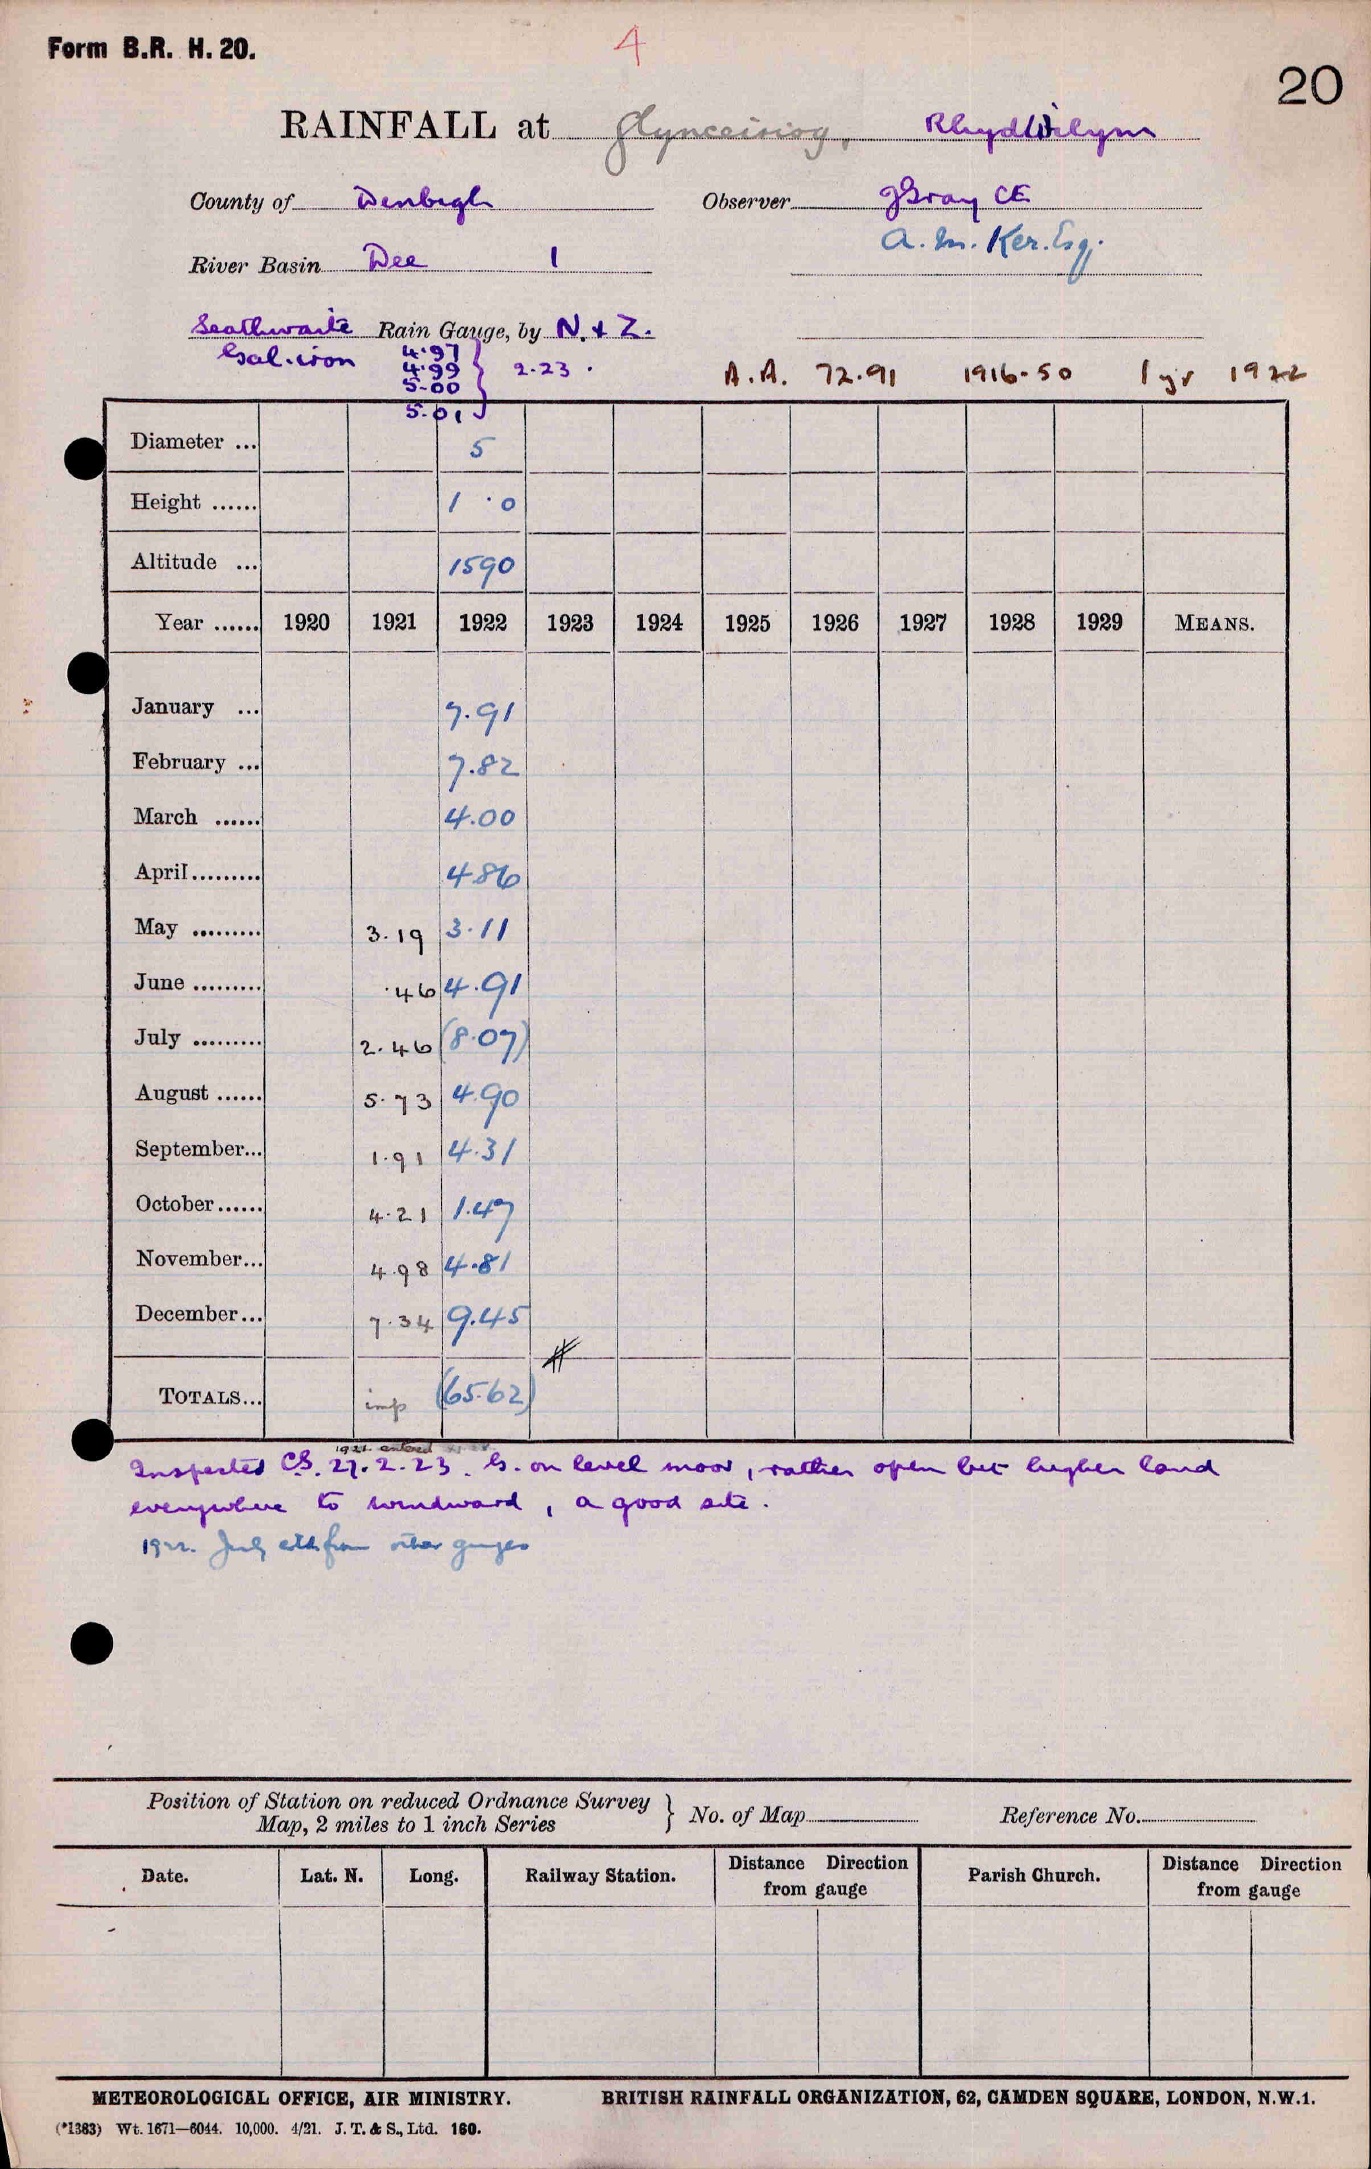 Form B.R. H. 20.
4
20
RAINFALL at Glynceiriog, RhydWilym
County of Denbigh Observer JGray CE
A. M. Ker. Esq.
River Basin Dee 1
Seathwaite Rain Gauge, by N. & Z.
Gal. iron 4.97
4.99 } 2.23.
5.00
5.01
A.A. 72.91 1916-50 1 yr 1922
Diameter ... 5
Height ...... 1 . 0
Altitude ... 1590
Year ...... 1920 1921 1922 1923 1924 1925 1926 1927 1928 1929 MEANS.
January ... 7.91
February ... 7.82
March ...... 4.00
April ......... 4.86
May ......... 3.19 3.11
June ......... .46 4.91
July ......... 2.46 (8.07)
August ...... 5.73 4.90
September... 1.91 4.31
October ...... 4.21 1.47
November... 4.98 4.81
December... 7.34 9.45
TOTALS... imp (65.62)
entered
Inspected C.S. 27.2.23. G. on level moor, rather open but higher land
everywhere to windward, a good site.
1922. July from other gauges
Position of Station on reduced Ordnance Survey
Map, 2 miles to 1 inch Series } No. of Map Reference No.
Date. Lat. N. Long. Railway Station. Distance Direction from gauge Parish Church. Distance Direction from gauge
METEOROLOGICAL OFFICE, AIR MINISTRY. BRITISH RAINFALL ORGANIZATION, 62, CAMDEN SQUARE, LONDON, N.W.1.
(*1383) Wt. 1671—6044. 10,000. 4/21. J. T. & S., Ltd. 160.